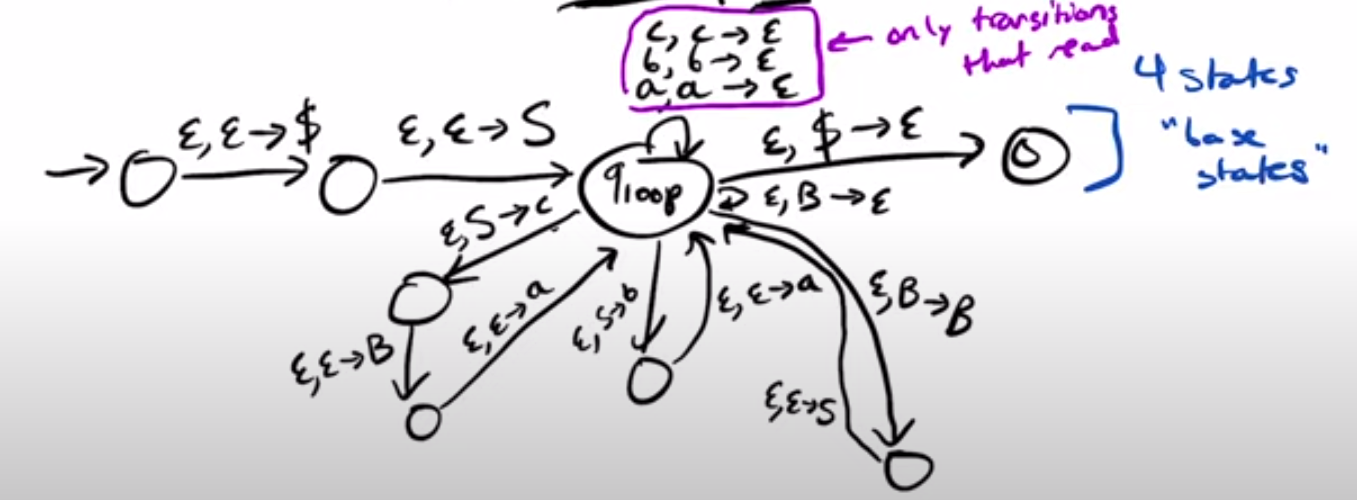 c, c→ε
b, b→ε
a, a→ε
← only transitions
that read
4 states
"base
states"
ε, ε→$
ε, ε→S
ε, $→ε
q loop
ε, B→ε
ε, S→c
ε, ε→B
ε, ε→a
ε, S→b
ε, ε→a
ε, B→B
ε, ε→S